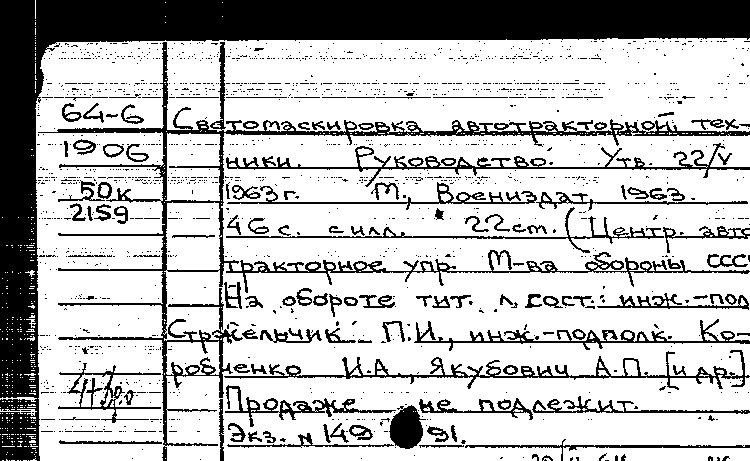 64-6 Светомаскировка автотракторной тех-
1906 ники. Руководство. Утв. 22/V
50к 1963 г. М., Воениздат, 1963.
2159
46 с. с илл. 22 cm. (Центр. авто
тракторное упр. М-ва обороны СССР
На обороте тит. л. сост.: инж.-под
Стражельчик П.И., инж.-подполк. Ко-
робченко И.А., Якубович А.П. [и др.]
Продаже не подлежит.
Экз. N 149 91.